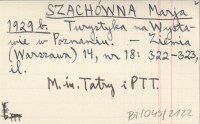 SZACHÓWNA Marja
1929 b. Turystyka na Wysta-
wie w Poznaniu. – Ziemia
(Warszawa) 14, nr 18: 322–323,
il.
M. in. Tatry i PTT.